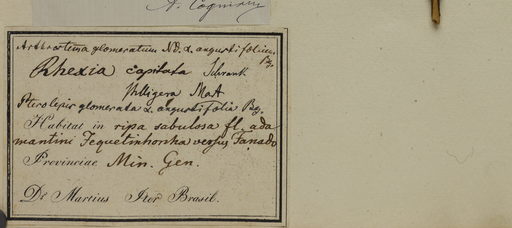 A. Cogniaux
Arthrostema glomeratum Nd. α angustifolium.
Bg.
Rhexia capitata Schrank
Philligera Mart
Pterolepis glomerata α angustifolia Bg.
Habitat in ripa sabulosa fl. ada
mantini Tequetinhonha versus Tanado
Provinciae Min. Gen.
Dr Martius Iter Brasil.